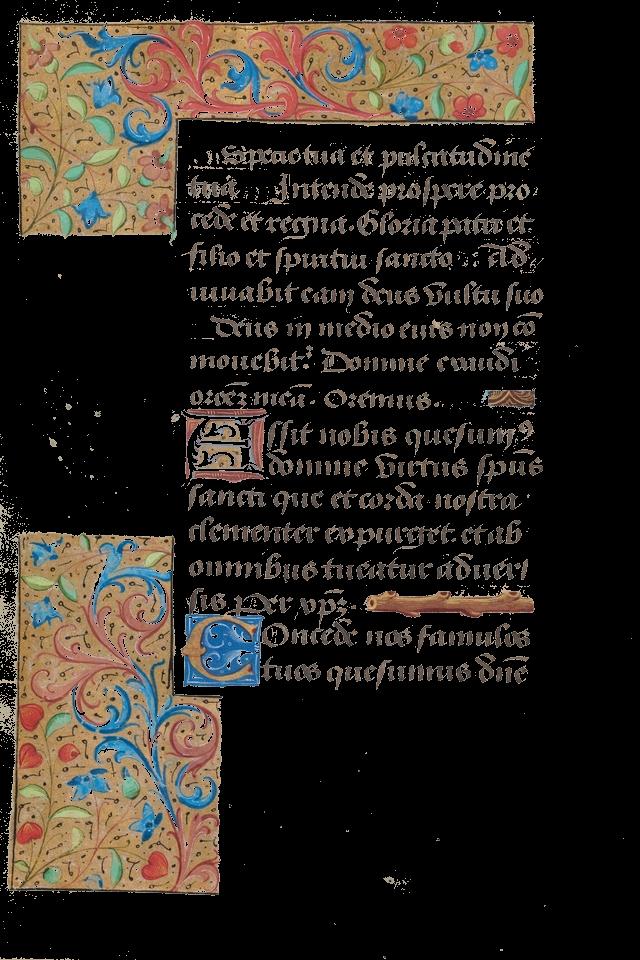 Specie tua et pulcritudine
tua Intende prospere pro
cede et regna. Gloria patri et
filio et spiritui sancto Ad
iuuabit eam deus vultu suo
Deus in medio eius non co̅
mouebit̉ Domine exaudi
oroēꝫ meā. Oremus.
Assit nobis quesumꝰ
domine virtus spūs
sancti que et corda nostra
clementer expurget. et ab
omnibus tueatur aduer
sis Per xp̄ꝫ.
Concede nos famulos
tuos quesumus dn̄e